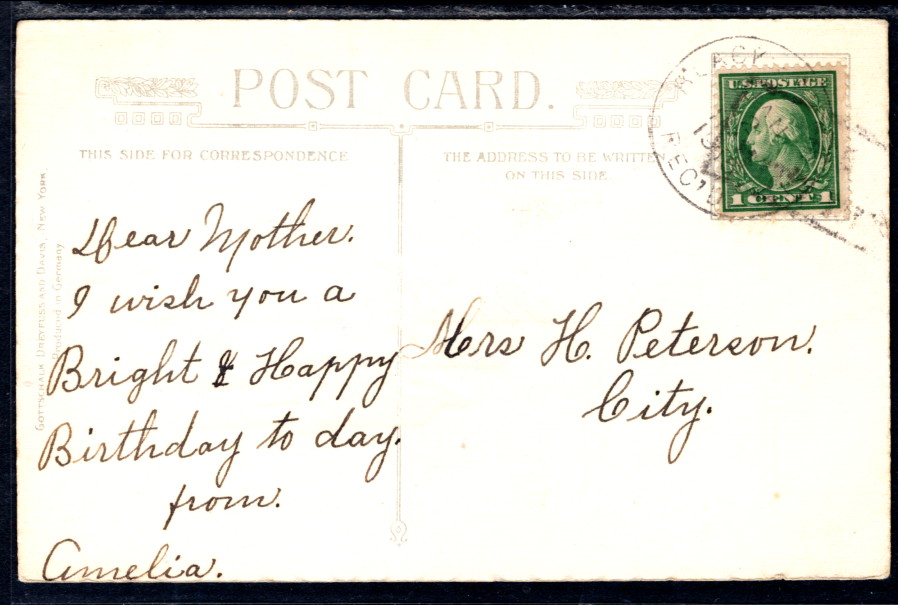 POST CARD.
THIS SIDE FOR CORRESPONDENCE
THE ADDRESS TO BE WRITTEN
ON THIS SIDE
U.S. POSTAGE
1 CENT 1
BLACK
REC'D
GOTTSCHALK, DREYFUSS AND DAVIS, NEW YORK.
Produced in Germany
Dear Mother.
I wish you a
Bright & Happy
Birthday to day.
from.
Amelia.
Mrs H. Peterson.
City.